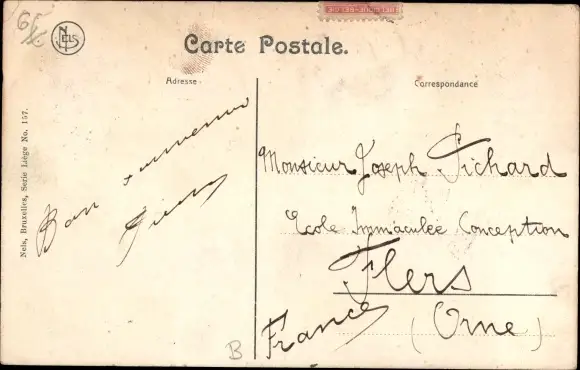 65
NELS
Carte Postale.
Adresse
Correspondance
Nels, Bruxelles, Serie Liège No. 157.
Bon souvenir
Monsieur Joseph Pichard
Ecole Immaculée Conception
Flers
(Orne)
France
B